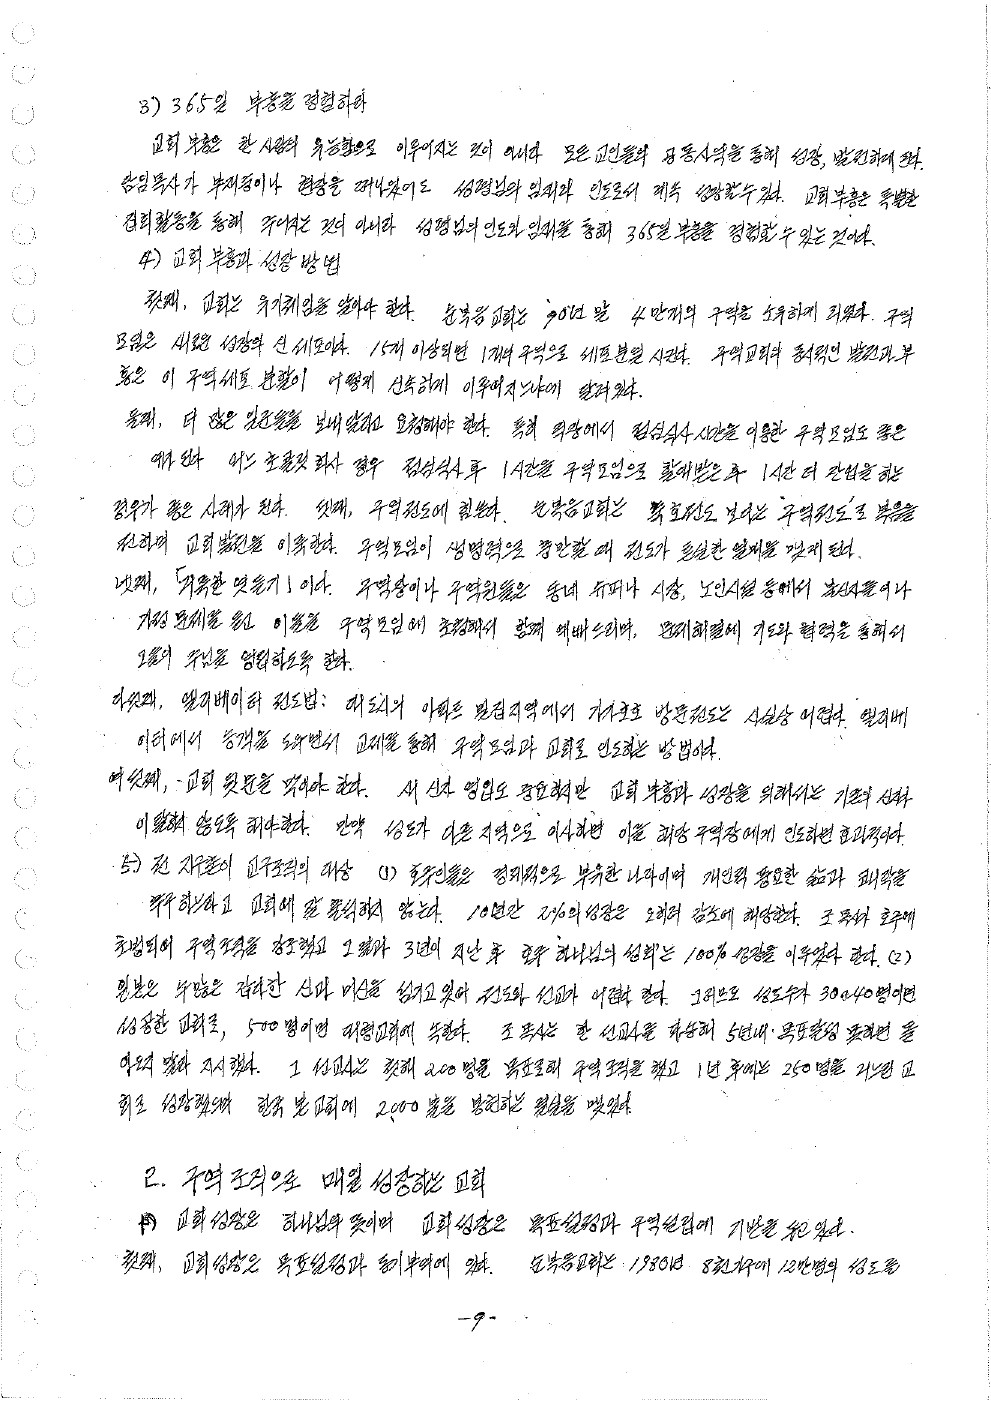 3) 365일 부흥을 경험하라
교회 부흥은 한 사람의 유능함으로 이루어지는 것이 아니다 모든 교인들의 공동사역을 통해 성장, 발전하게 된다.
담임목사가 부재중이나 현장을 떠나있어도 성령님의 임재와 인도로서 계속 성장할 수 있다. 교회부흥은 특별한
집회활동을 통해 주어지는 것이 아니라 성령님의 인도와 임재를 통해 365일 부흥을 경험할 수 있는 것이다.
4) 교회 부흥과 성장 방법
첫째, 교회는 유기체임을 알아야 한다. 순복음교회는 '90년 말 4만개의 구역을 소유하게 되었다. 구역
모임은 새로운 성장의 산 세포이다. 15개 이상되면 1개의 구역으로 세포분열 시킨다. 구역교회의 동시적인 발전과 부
흥은 이 구역세포 분할이 어떻게 신속하게 이루어지느냐에 달려있다.
둘째, 더 많은 일꾼들을 보내달라고 요청해야 한다. 특히 직장에서 점심식사 시간을 이용한 구역모임도 좋은
예가 된다 어느 초콜릿 회사 경우 점심식사 후 1시간을 구역모임으로 할애받은 후 1시간 더 잔업을 하는
경우가 좋은 사례가 된다. 셋째, 구역전도에 힘쓴다. 순복음교회는 축호전도 보다는 '구역전도'로 복음을
전하며 교회발전을 이룩한다. 구역모임이 생명력으로 충만할 때 전도가 튼실한 열매를 맺게 된다.
넷째, 「거룩한 엿듣기」이다. 구역장이나 구역원들은 동네 슈퍼나 시장, 노인시설 등에서 불신자들이나
가정 문제를 듣고 이들을 구역모임에 초청해서 함께 예배드리며, 문제해결에 기도와 협력을 통해서
그들이 주님을 영접하도록 한다.
다섯째, 엘리베이터 전도법: 대도시의 아파트 밀집지역에서 가가호호 방문전도는 사실상 어렵다. 엘리베
이터에서 승객을 도와면서 교제를 통해 구역모임과 교회로 인도하는 방법이다.
여섯째, 교회 뒷문을 막아야 한다. 새 신자 영입도 중요하지만 교회 부흥과 성장을 위해서는 기존의 신자가
이탈하지 않도록 해야한다. 만약 성도가 다른 지역으로 이사하면 이를 해당 구역장에게 인도하면 효과적이다.
5) 전 지구촌이 교구조직의 대상 (1) 호주인들은 경제적으로 부유한 나라이며 개인적 풍요한 삶과 쾌락을
추구하느라고 교회에 잘 출석하지 않는다. 10년간 2%의 성장은 오히려 감소에 해당한다. 조 목사 호주에
초빙되어 구역조직을 강조했고 그 결과 3년이 지난 후 호주 하나님의 성회는 100% 성장을 이루었다 한다. (2)
일본은 수많은 잡다한 신과 미신을 섬기고 있어 전도와 선교가 어렵다 한다. 그러므로 성도수가 30~40명이면
성공한 교회로, 500명이면 대형교회에 속한다. 조 목사는 한 선교사를 파송해 5년내 목표달성 못하면 돌
아오지 말라 지시했다. 그 선교사는 첫해 200명을 목표로해 구역조직을 했고 1년 후에는 250명을 거느린 교
회로 성장했으며 한국 본 교회에 2,000불을 봉헌하는 결실을 맺었다.
2. 구역조직으로 매일 성장하는 교회
교회성장은 하나님의 뜻이며 교회성장은 목표설정과 구역설립에 기반을 두고 있다.
첫째, 교회성장은 목표설정과 동기부여에 있다. 순복음교회는 1980년 8천가구에 12만명의 성도를
-9-